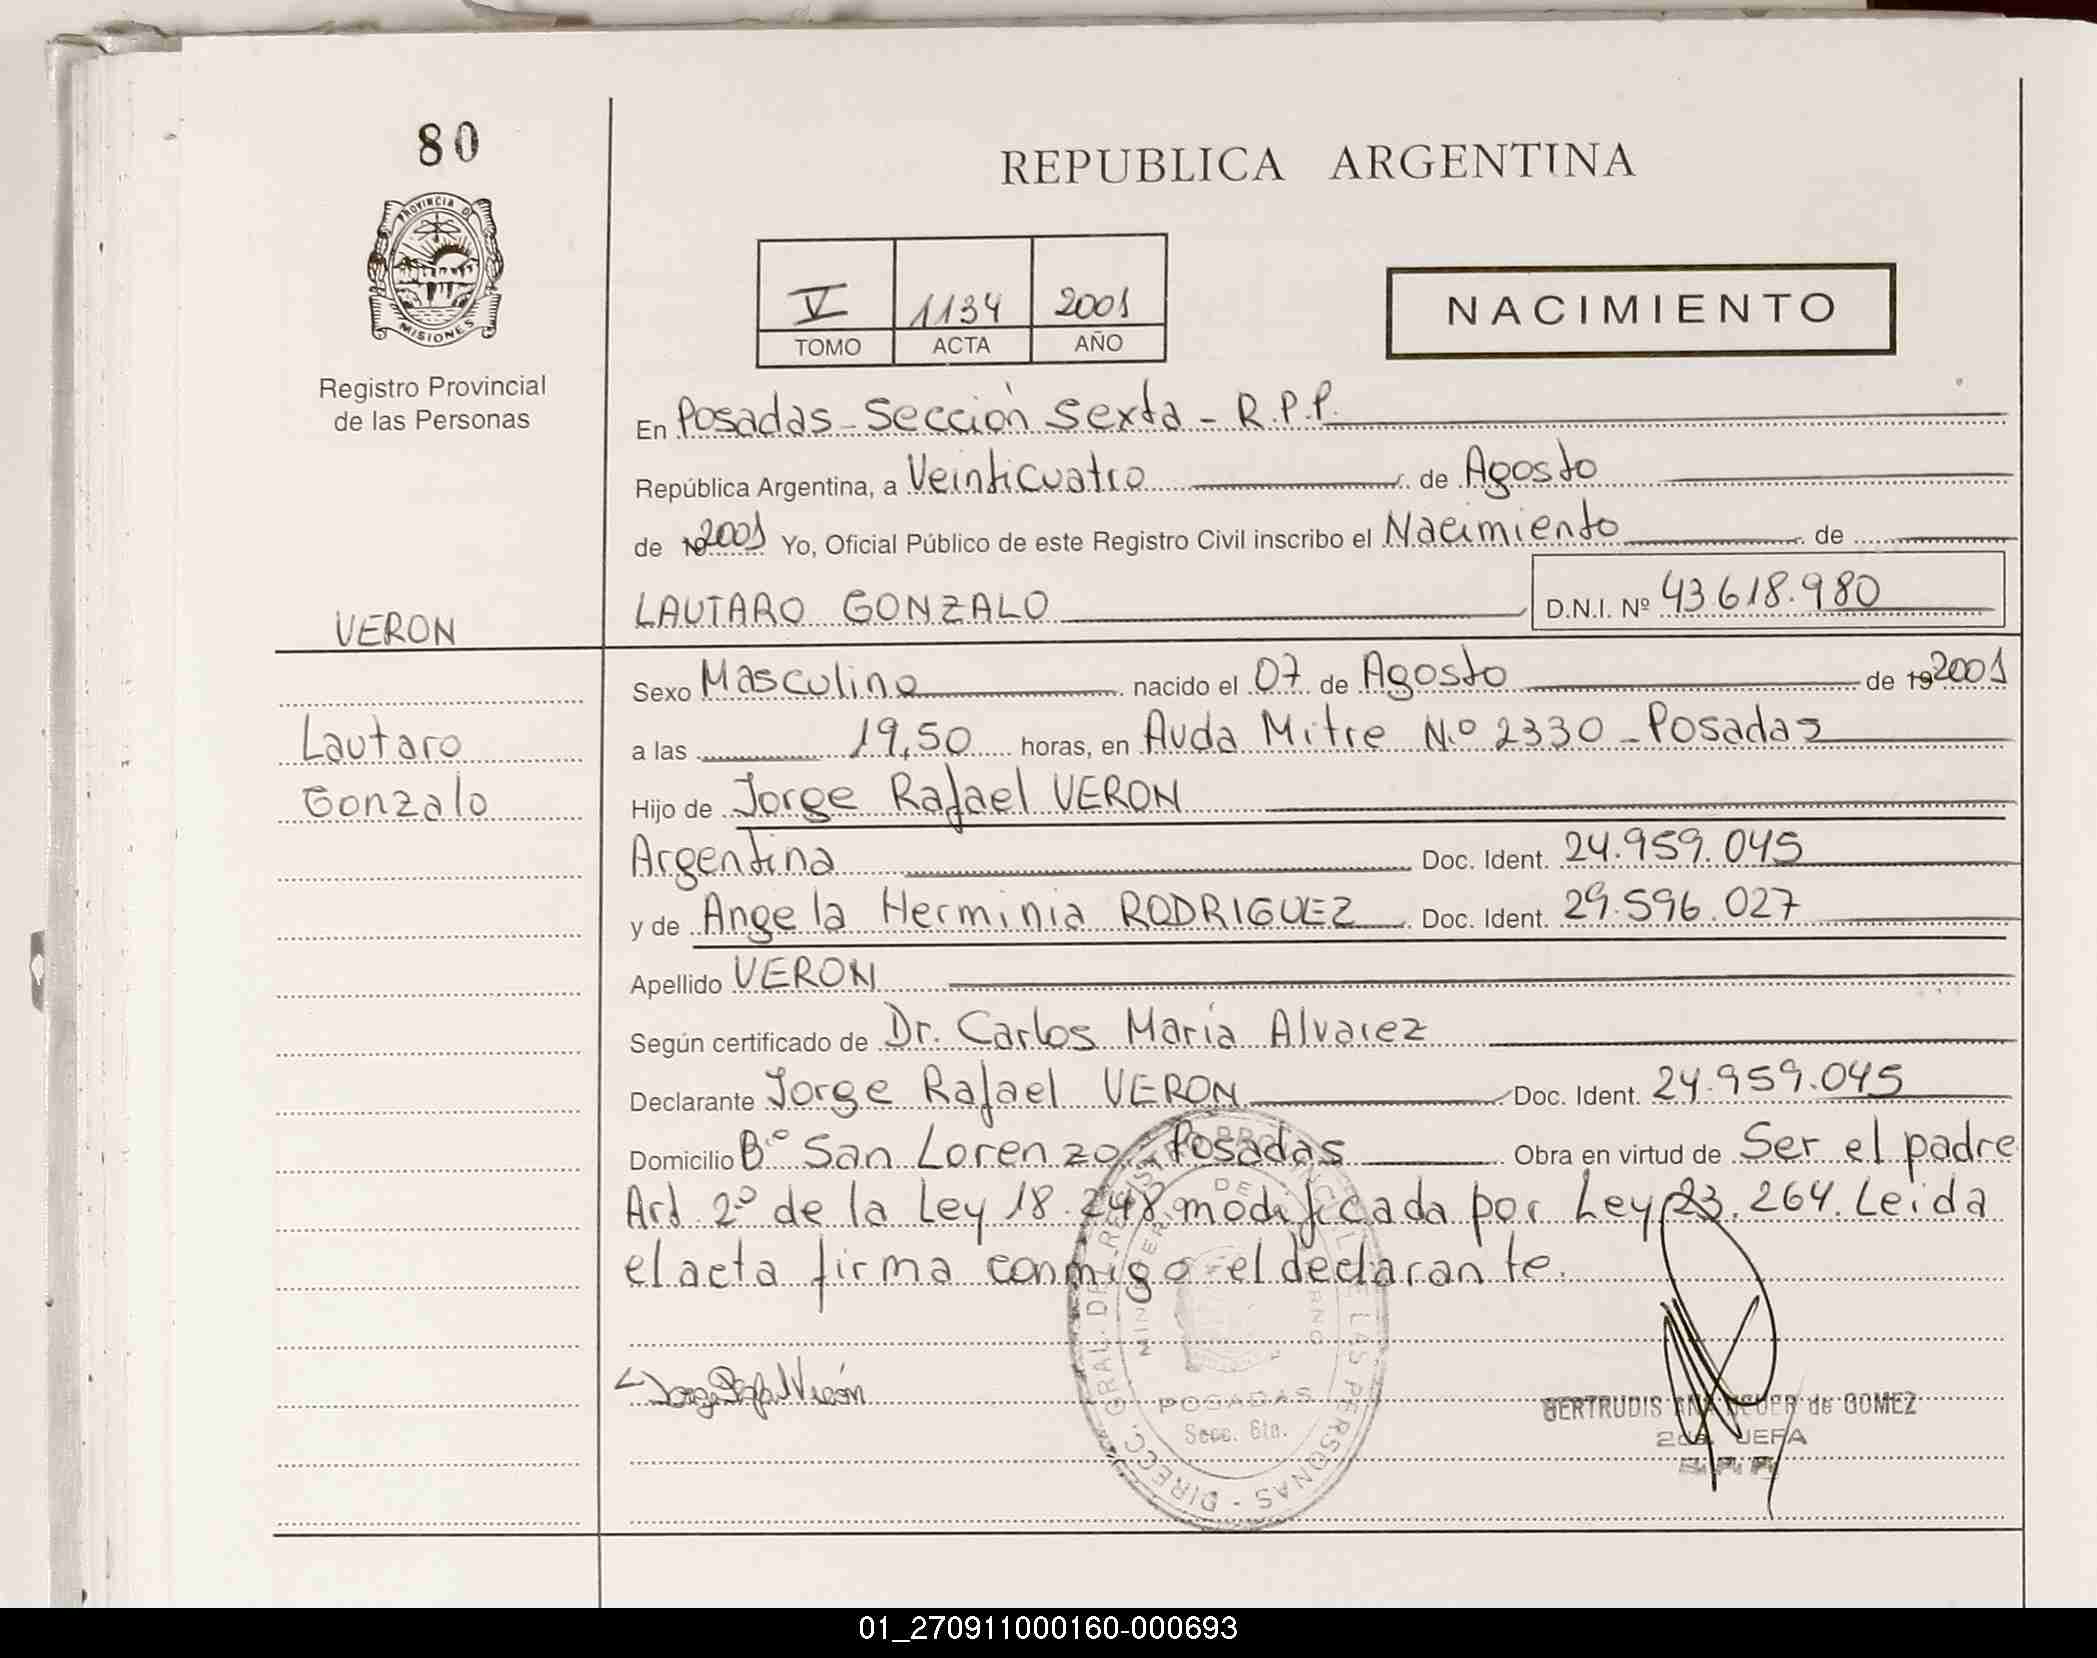 80
REPUBLICA ARGENTINA
PROVINCIA D
MISIONES
V 1134 2001
TOMO ACTA AÑO
NACIMIENTO
Registro Provincial
de las Personas
En Posadas - Sección Sexta - R.P.P.
República Argentina, a Veinticuatro de Agosto
de 19 2001 Yo, Oficial Público de este Registro Civil inscribo el Nacimiento de
VERON
LAUTARO GONZALO D.N.I. Nº 43.618.980
Sexo Masculino nacido el 07 de Agosto de 19 2001
Lautaro
a las 19,50 horas, en Avda Mitre N.º 2330 - Posadas
Gonzalo
Hijo de Jorge Rafael VERON
Argentina Doc. Ident. 24.959.045
y de Angela Herminia RODRIGUEZ Doc. Ident. 29.596.027
Apellido VERON
Según certificado de Dr. Carlos María Alvarez
Declarante Jorge Rafael VERON Doc. Ident. 24.959.045
Domicilio Bº San Lorenzo - Posadas Obra en virtud de Ser el padre
Art. 2º de la Ley 18.248 modificada por Ley 23.264. Leida
el acta firma conmigo el declarante.
Jorge Rafael Verón
POSADAS
Secc. 6ta.
GERTRUDIS ANA de GOMEZ
2da. JEFA
R.P.P.
01_270911000160-000693